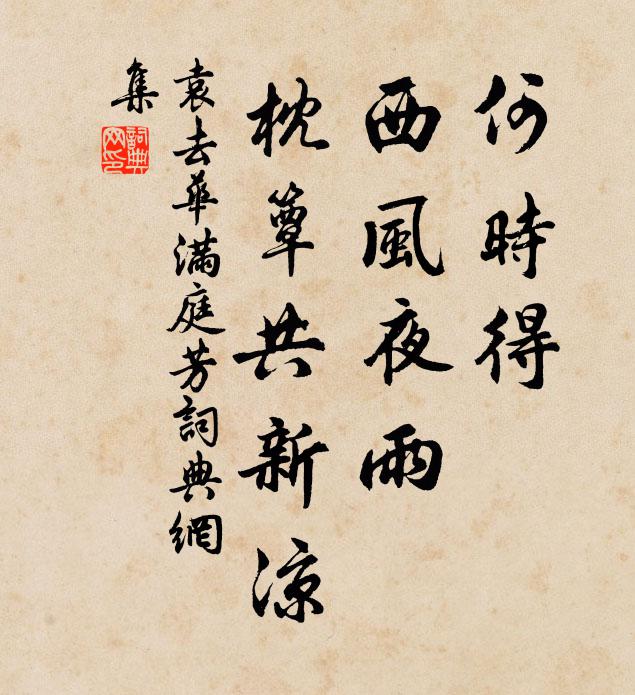 何時得
西風夜雨
枕簟共新凉
袁去華滿庭芳詞典網
集
詞典
网印